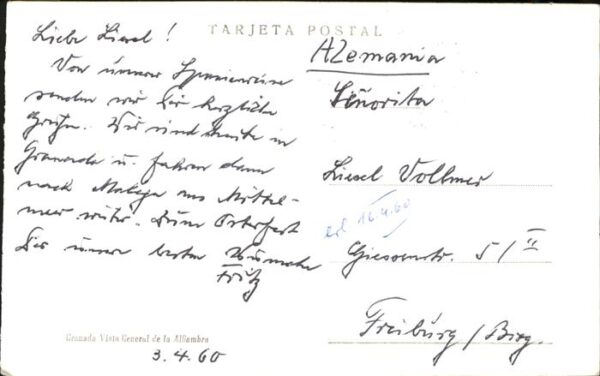 TARJETA POSTAL
Liebe Liesel!
Von unserer Spanienreise
senden wir Dir herzliche
Grüße. Wir sind heute in
Granada u. fahren dann
nach Malaga ans Mittel-
meer weiter. Zum Osterfest
Dir unsere besten Wünsche
Fritz
Alemania
Señorita
Liesel Vollmer
erl 16.4.60
5/II
Freiburg/Brsg.
Granada Vista General de la Alhambra
3.4.60